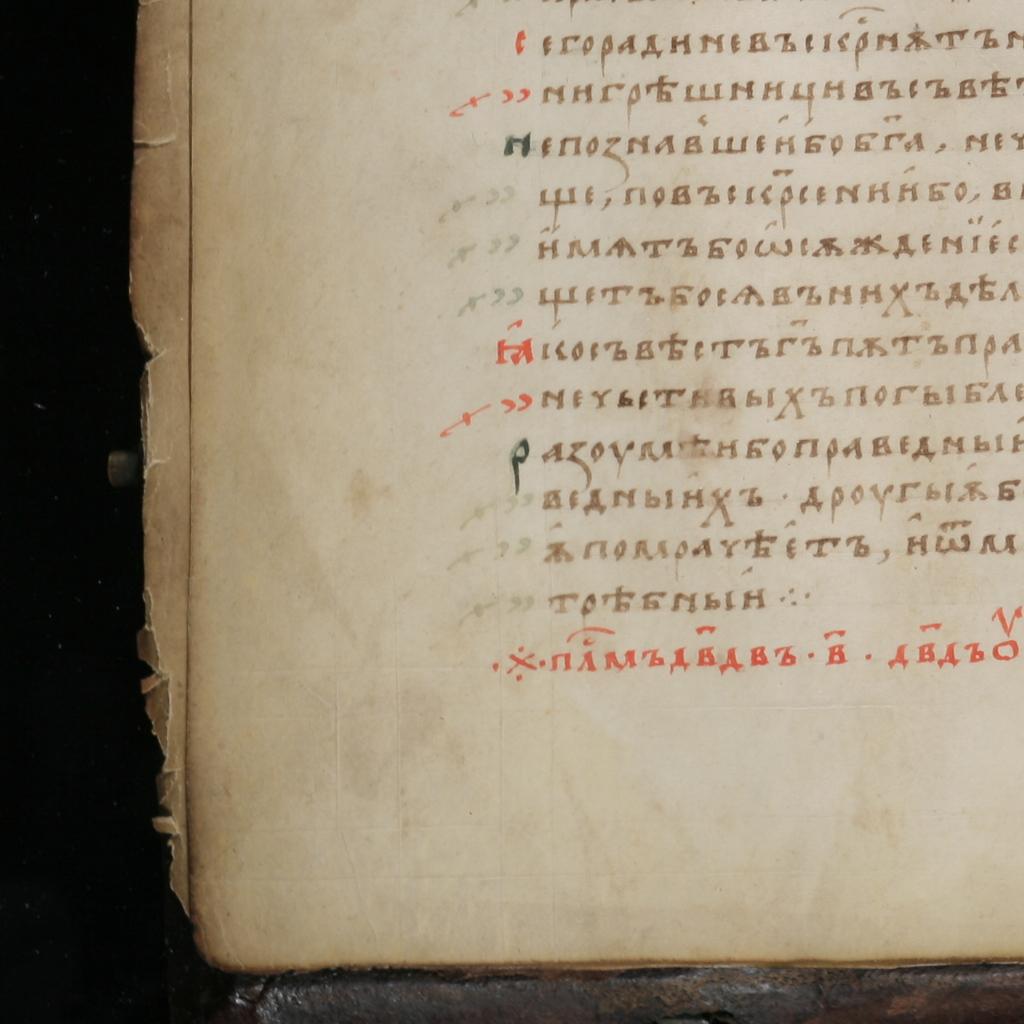 с егорадиневъскр҃нѫтън
нигрѣшницивъсъвѣт
н епознавшеи҆бобг҃а, неу
ще, повъскр҃сении҆бо, в
и҆мѫтъбоѡсѫждение҆с
щетъбосѧвънихъдѣл
ꙗ҆ косъвѣстъг҃ъпѫтъпра
нечьстивыхъпогыбле
р азоумѣибоправедныи҆
ведныи҆хъ · дроугыѫб
ѫ҆помрачѣе҆тъ, и҆ѿм
трѣбныи҆ ·:·
·҉· п҃лмъдв҃двъ · в҃ · дв҃дъѹ